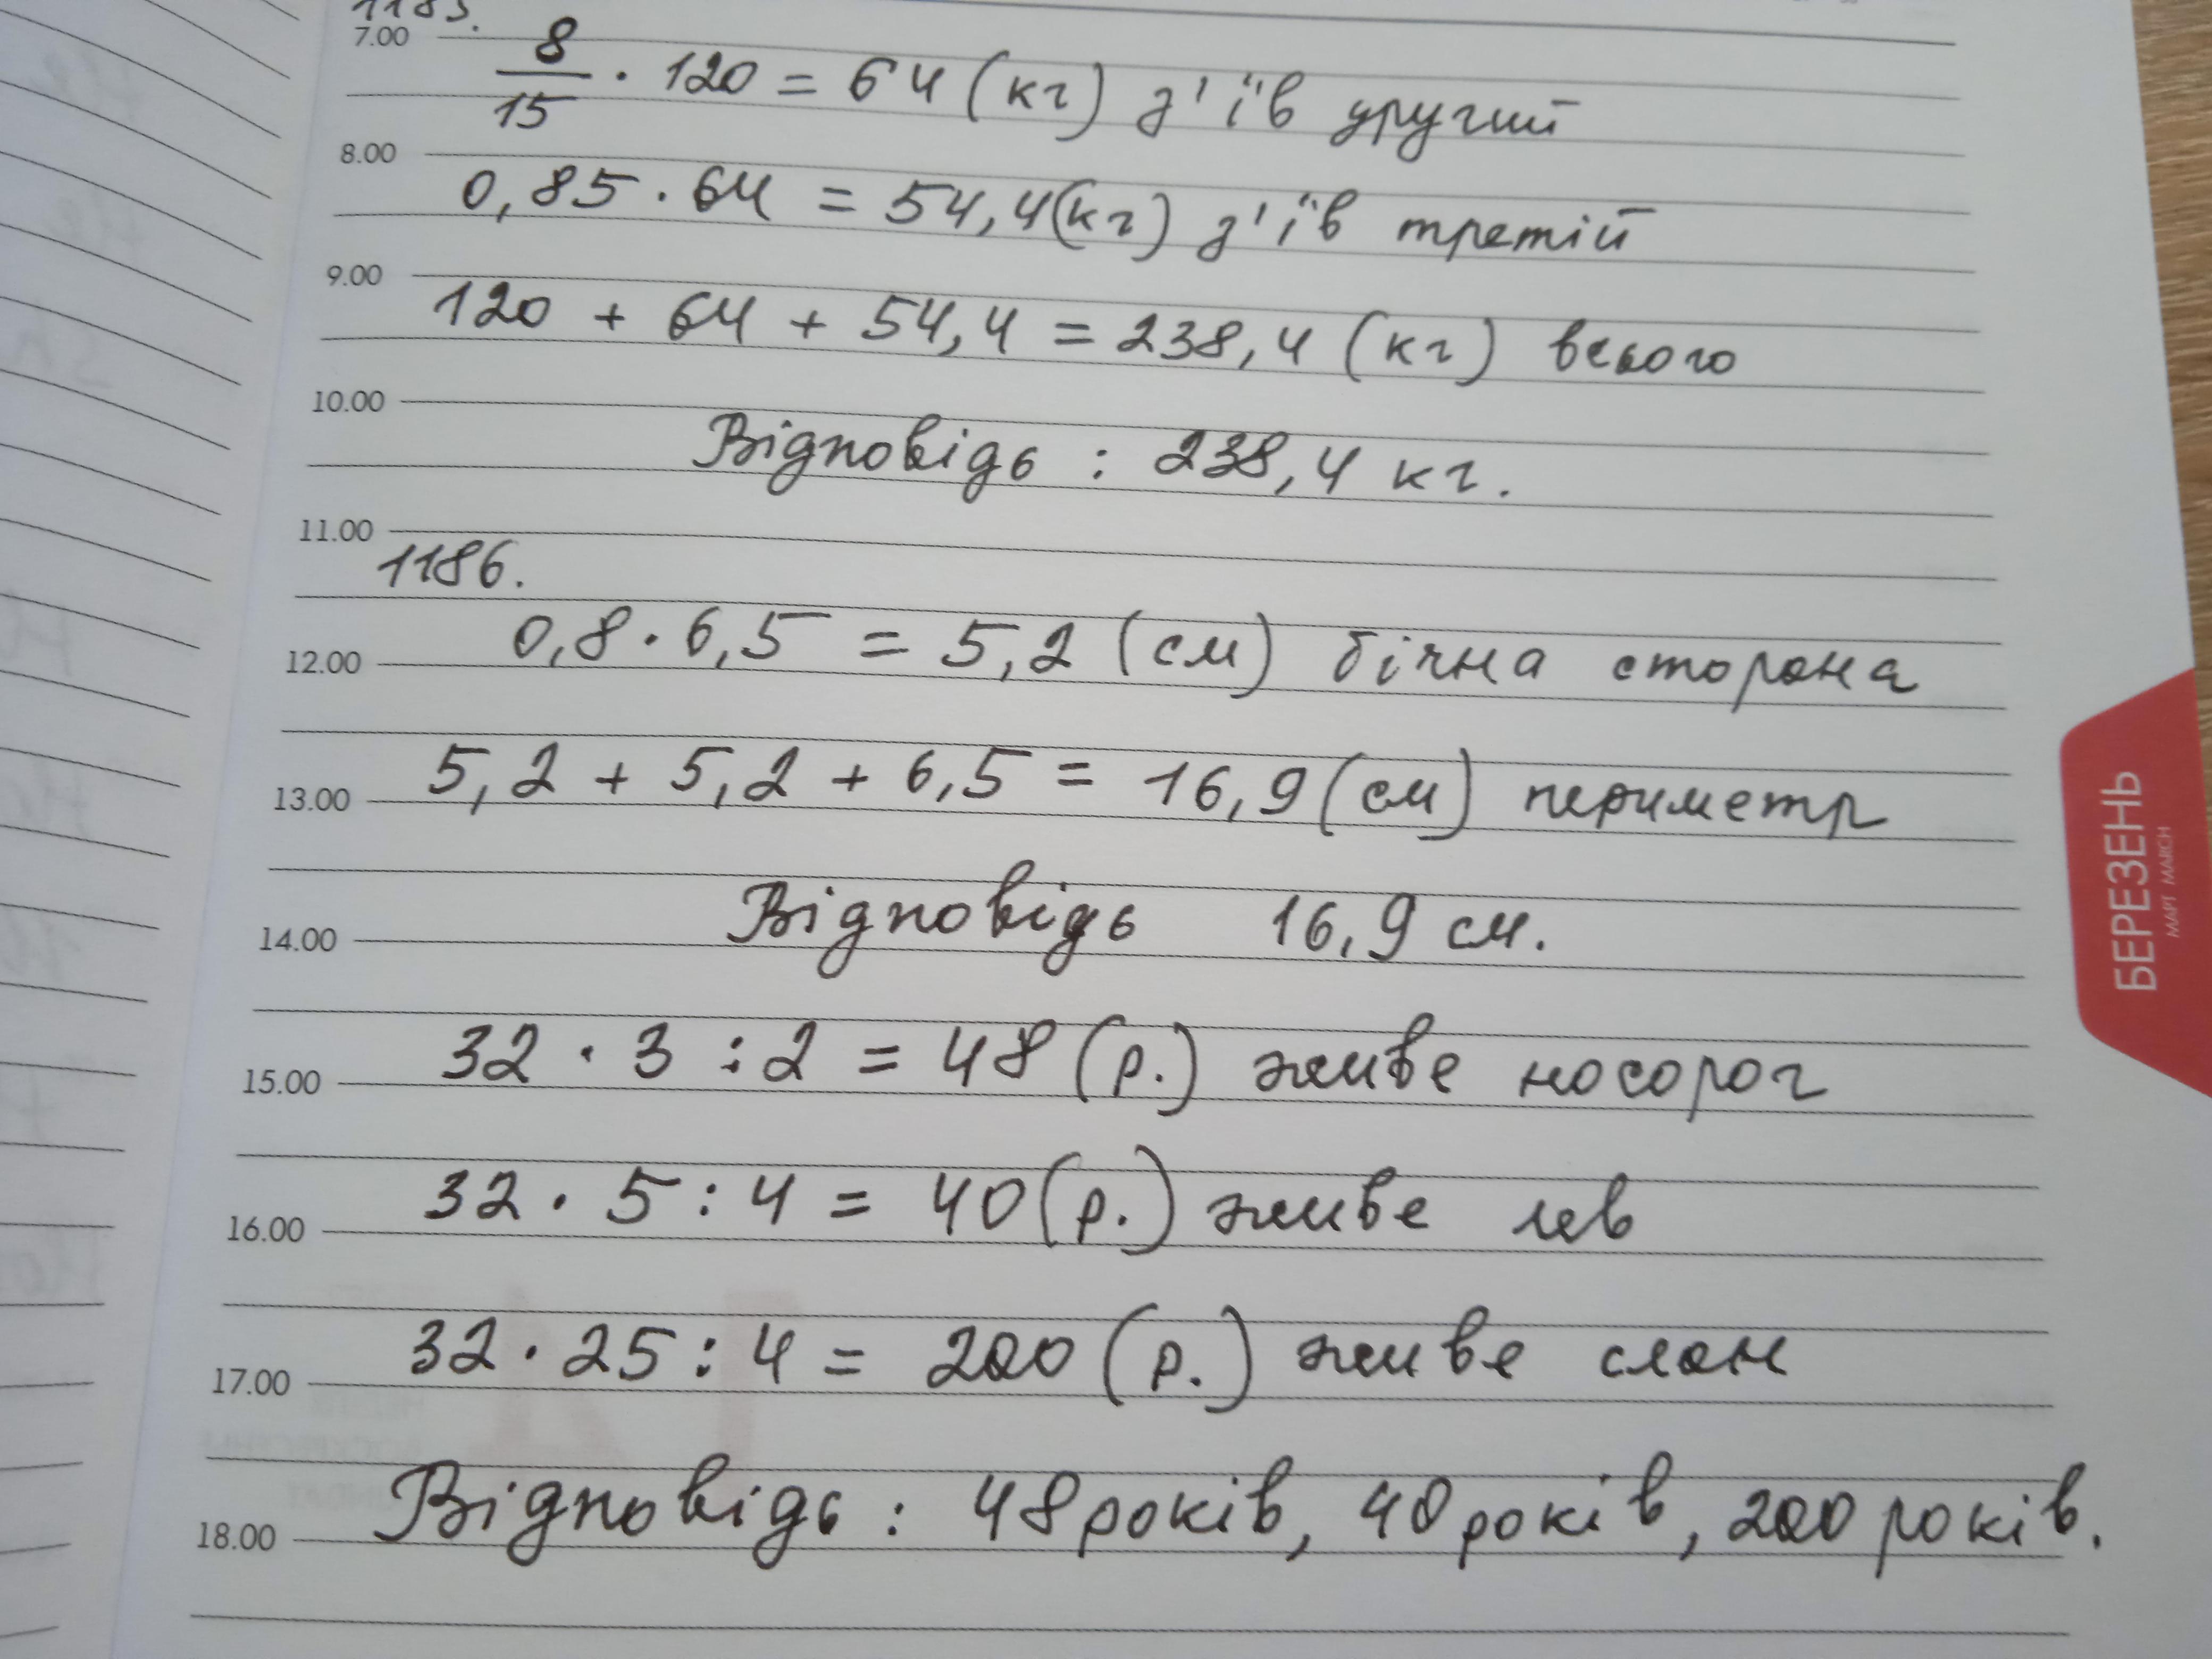 1185.
7.00
8/15 · 120 = 64 (кг) з'їв другий
8.00
0,85 · 64 = 54,4 (кг) з'їв третій
9.00
120 + 64 + 54,4 = 238,4 (кг) всього
10.00
Відповідь : 238,4 кг.
11.00
1186.
0,8 · 6,5 = 5,2 (см) бічна сторона
12.00
5,2 + 5,2 + 6,5 = 16,9 (см) периметр
13.00
Відповідь 16,9 см.
14.00
32 · 3 : 2 = 48 (р.) живе носорог
15.00
32 · 5 : 4 = 40 (р.) живе лев
16.00
32 · 25 : 4 = 200 (р.) живе слон
17.00
Відповідь : 48 років, 40 років, 200 років.
18.00
БЕРЕЗЕНЬ
МАРТ MARCH